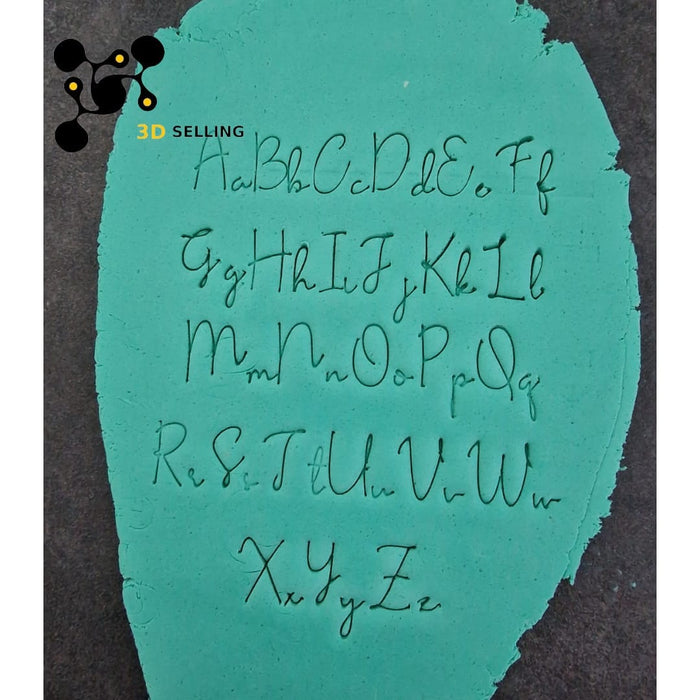 3D SELLING
AaBbCcDdEeFf
GgHhIiJjKkLl
MmNnOoPpQq
RrSsTtUuVvWw
XxYyZz